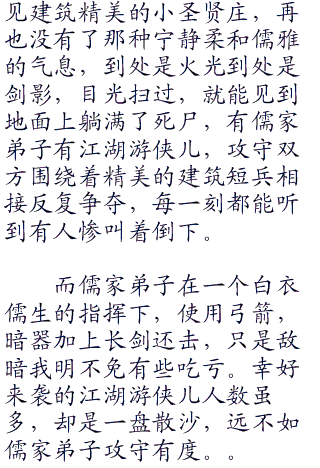 见建筑精美的小圣贤庄，再
也没有了那种宁静柔和儒雅
的气息，到处是火光到处是
剑影，目光扫过，就能见到
地面上躺满了死尸，有儒家
弟子有江湖游侠儿，攻守双
方围绕着精美的建筑短兵相
接反复争夺，每一刻都能听
到有人惨叫着倒下。
而儒家弟子在一个白衣
儒生的指挥下，使用弓箭，
暗器加上长剑还击，只是敌
暗我明不免有些吃亏。幸好
来袭的江湖游侠儿人数虽
多，却是一盘散沙，远不如
儒家弟子攻守有度。。